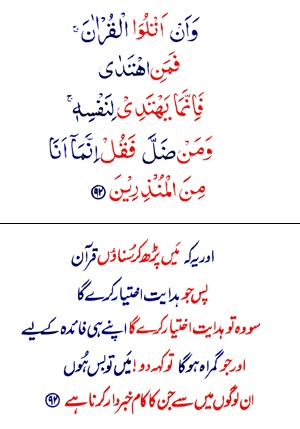 وَاَنْ اَتْلُوَا الْقُرْاٰنَ ۚ
فَمَنِ اهْتَدٰى
فَاِنَّمَا يَهْتَدِىْ لِنَفْسِهٖ ۚ
وَمَنْ ضَلَّ فَقُلْ اِنَّمَاۤ اَنَا
مِنَ الْمُنْذِرِيْنَ ﴿۹۲﴾
اور یہ کہ مَیں پڑھ کر سُناؤں قرآن
پس جو ہدایت اختیار کرے گا
سو وہ تو ہدایت اختیار کرے گا اپنے ہی فائدہ کے لیے
اور جو گمراہ ہوگا تو کہہ دو! مَیں تو بس ہُوں
ان لوگوں میں سے جن کا کام خبردار کرنا ہے ﴿۹۲﴾